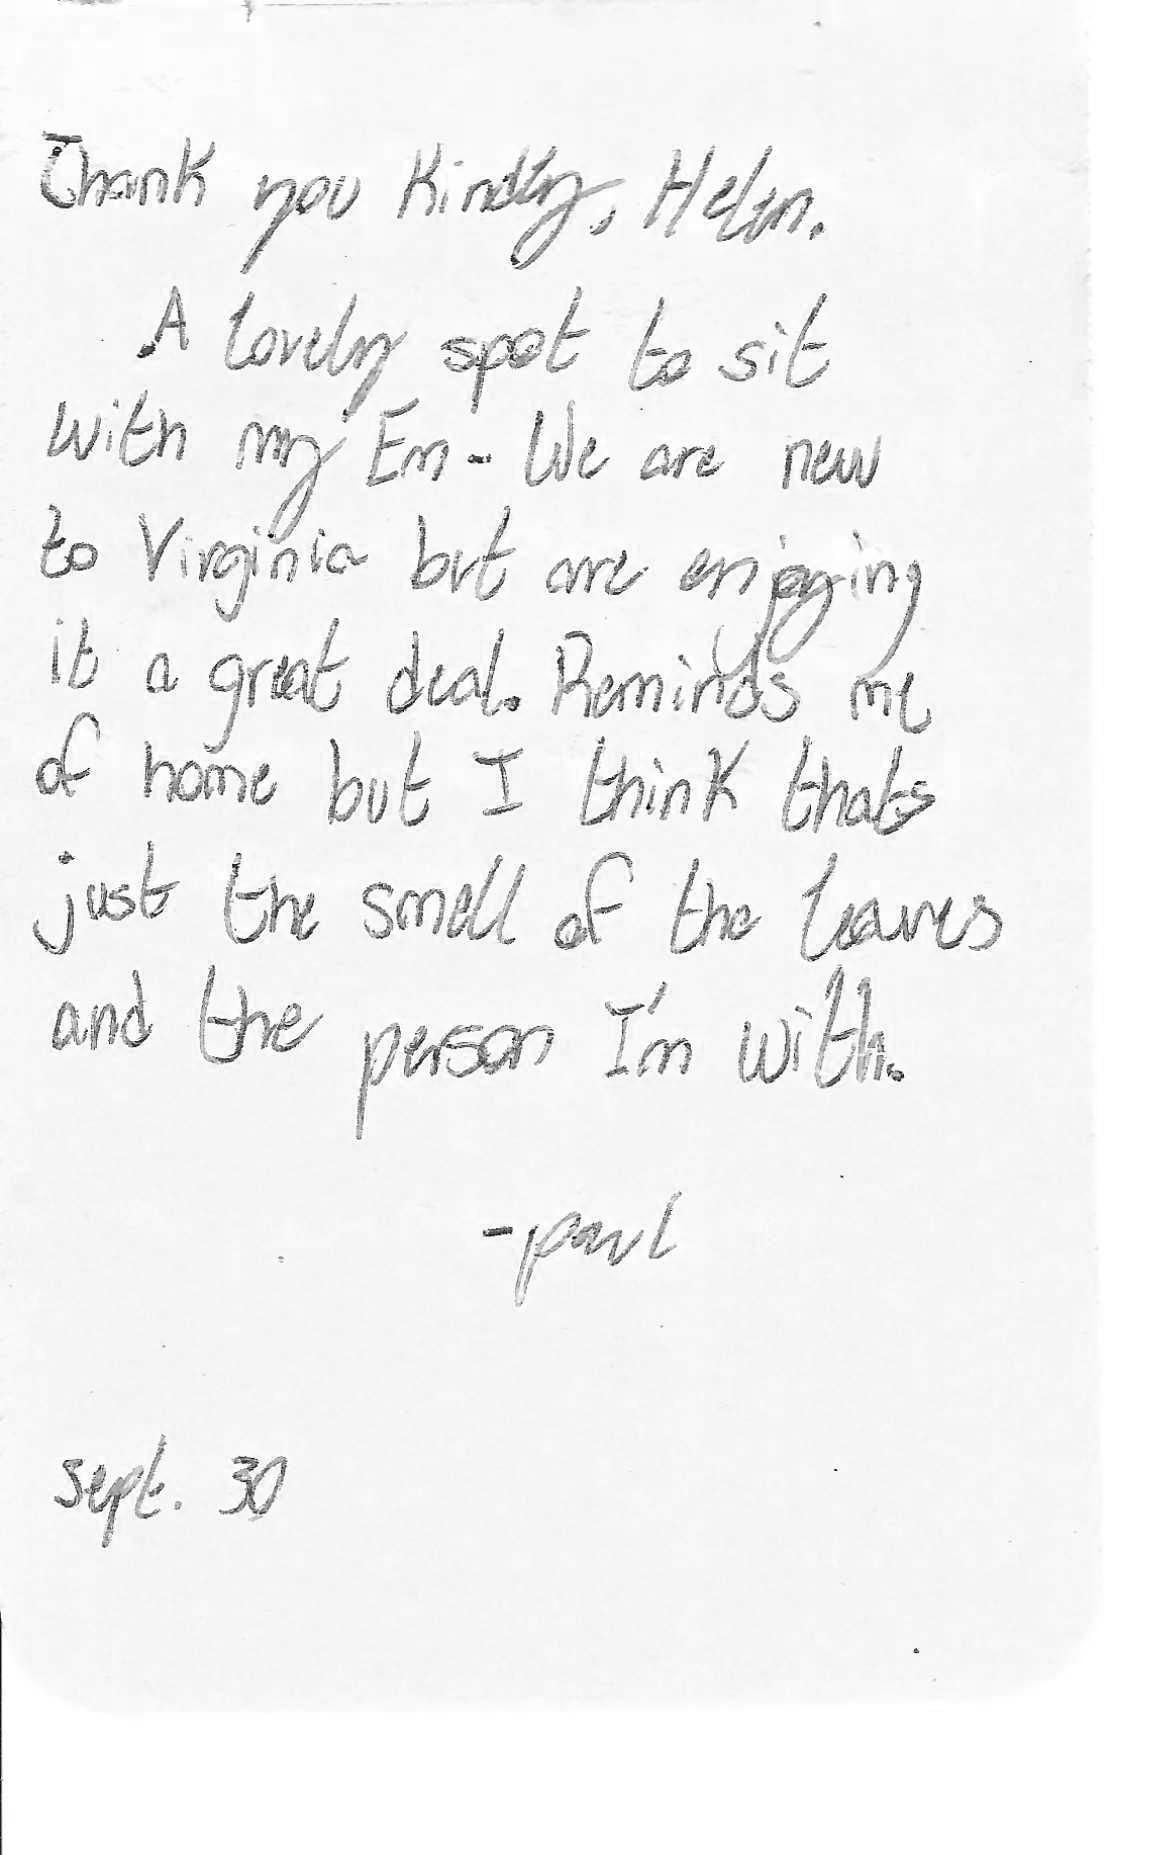 Thank you Kindly, Helen.
A lovely spot to sit
with my Em - We are new
to Virginia but are enjoying
it a great deal. Reminds me
of home but I think thats
just the smell of the leaves
and the person I'm with.
- paul
sept. 30